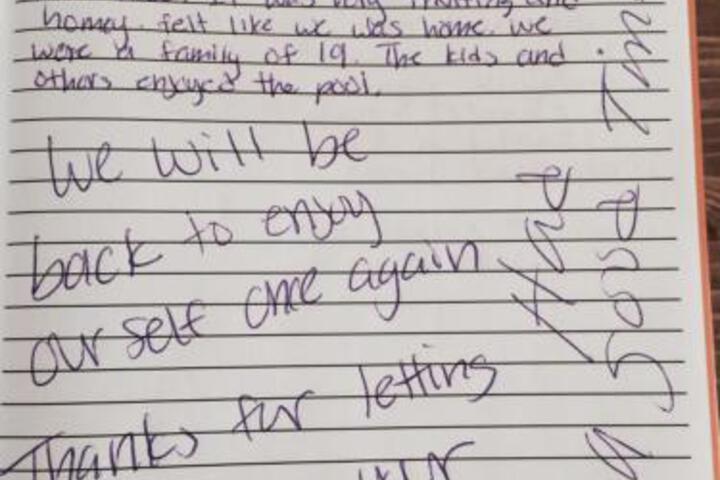 homey. felt like we was home. we
were a family of 19. The kids and
others enjoyed the pool.
We will be
back to enjoy
our self once again
Thanks for letting
Had
A good Tim